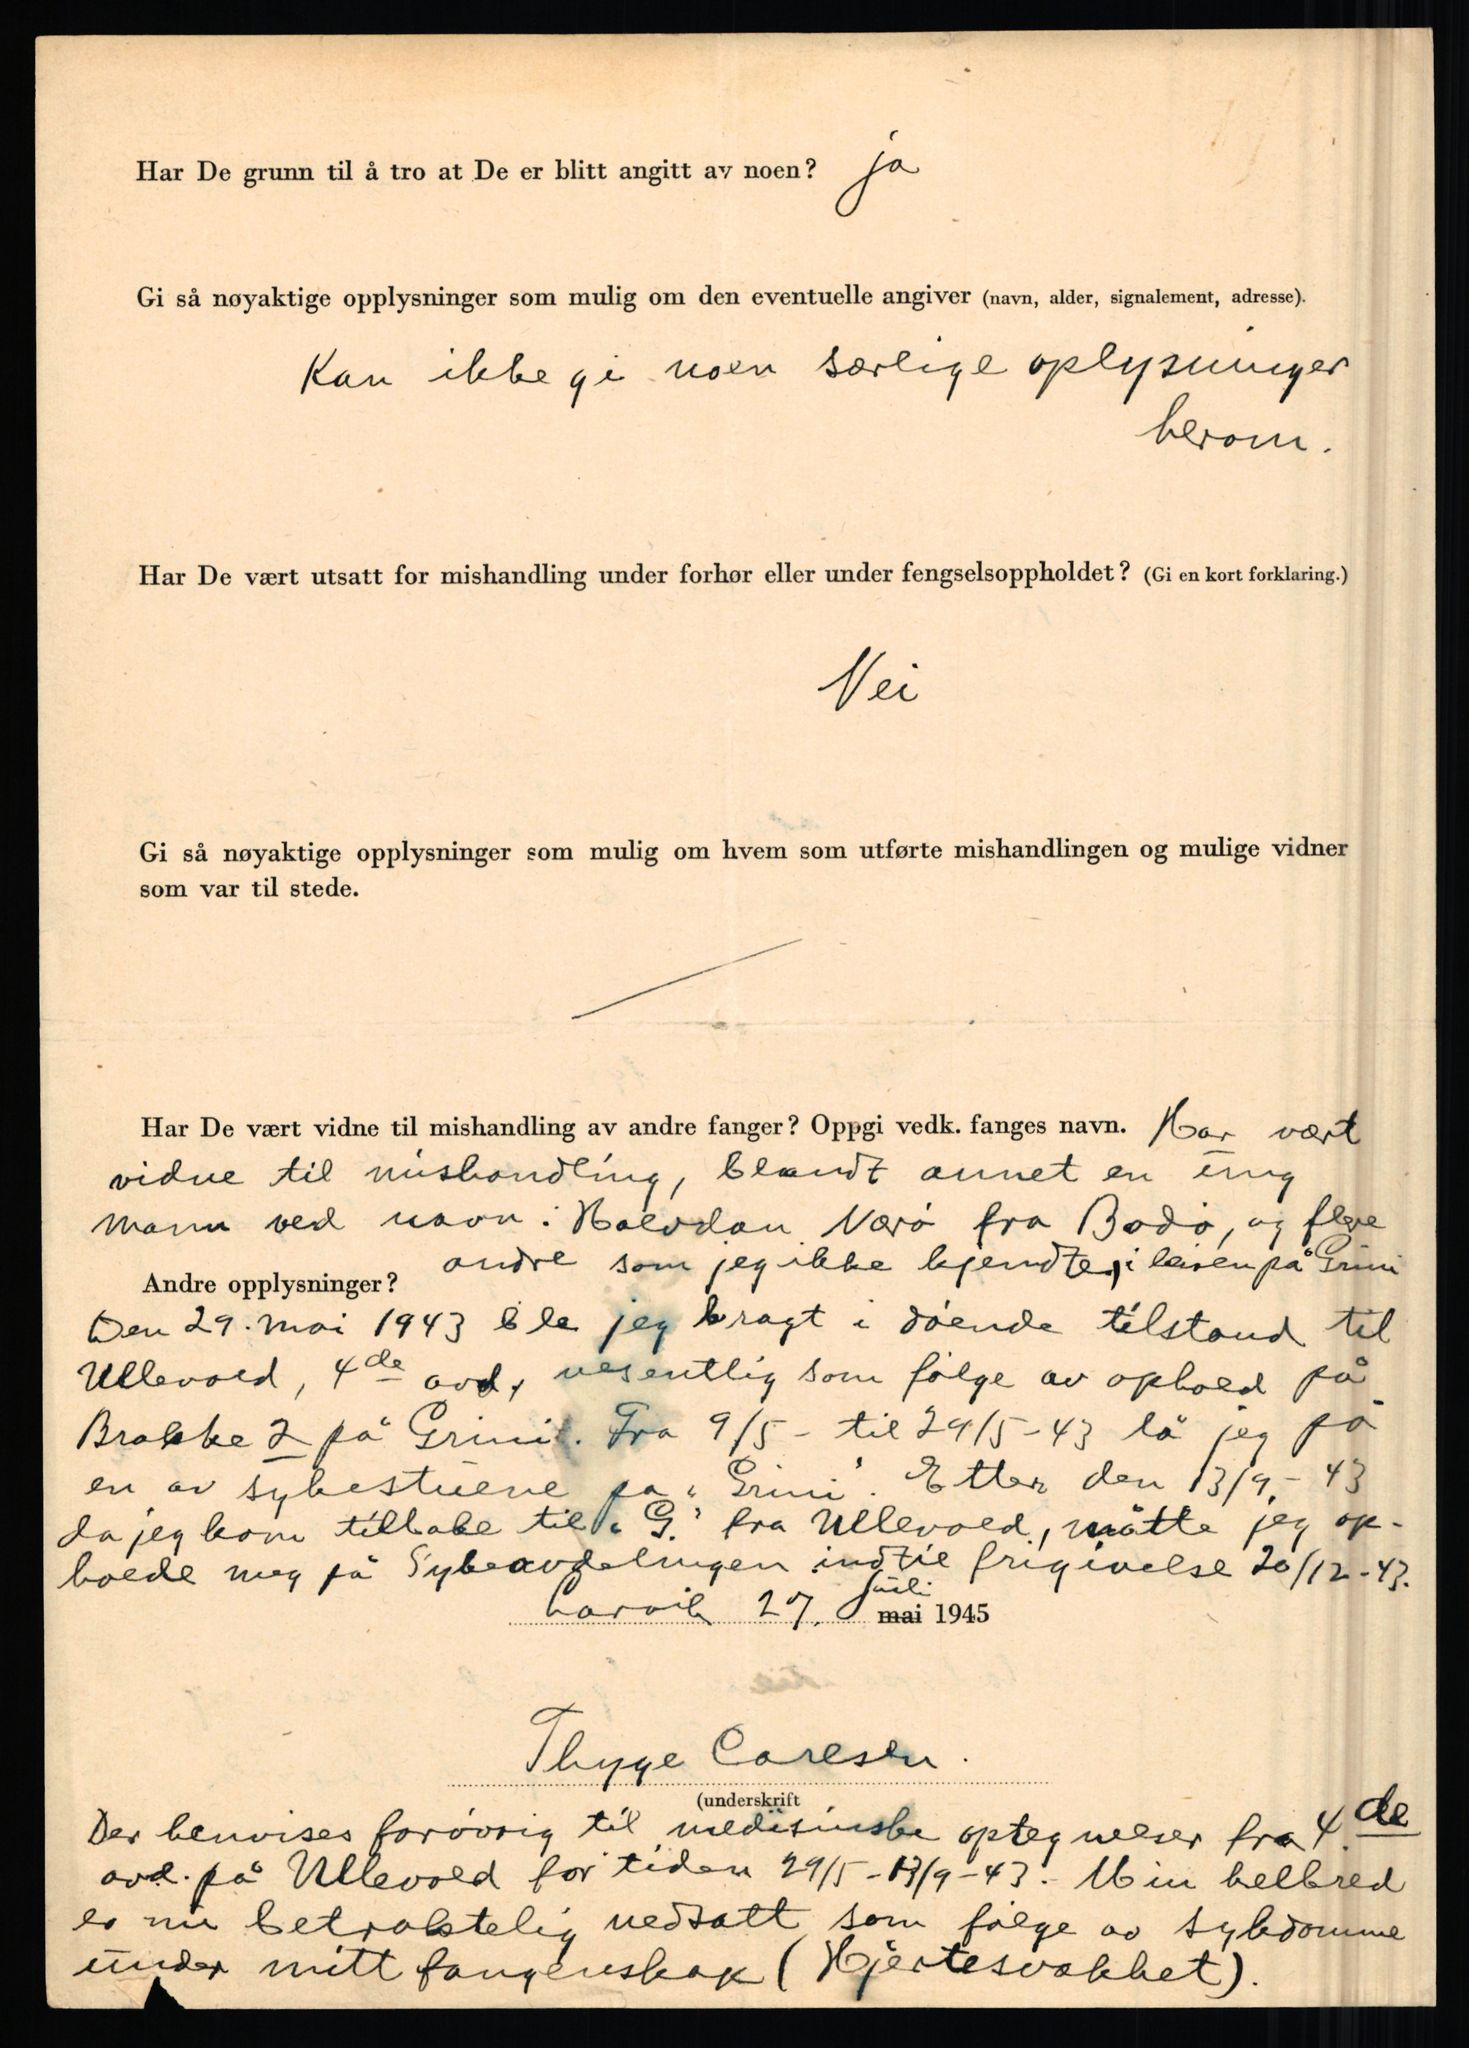 Har De grunn til å tro at De er blitt angitt av noen? ja
Gi så nøyaktige opplysninger som mulig om den eventuelle angiver (navn, alder, signalement, adresse).
Kan ikke gi noen særlige oplysninger
herom.
Har De vært utsatt for mishandling under forhør eller under fengselsoppholdet? (Gi en kort forklaring.)
Nei
Gi så nøyaktige opplysninger som mulig om hvem som utførte mishandlingen og mulige vidner
som var til stede.
Har De vært vidne til mishandling av andre fanger? Oppgi vedk. fanges navn. Har vært
vidne til mishandling, blandt annet en ung
mann ved navn: Halvdan Nærø fra Bodø, og flere
andre som jeg ikke kjendte, i leiren på Grini
Andre opplysninger?
Den 29. mai 1943 ble jeg bragt i døende tilstand til
Ullevold, 4de avd, vesentlig som følge av ophold på
Brakke 2 på Grini. Fra 9/5 - til 29/5-43 lå jeg på
en av sykestuene på "Grini". Etter den 13/9.-43
da jeg kom tilbake til "G." fra Ullevold, måtte jeg op-
holde meg på Sykeavdelingen indtil frigivelse 20/12-43.
Larvik 27. juli mai 1945
Thyge Carlsen.
(underskrift
Der henvises forøvrig til medisinske optegnelser fra 4de
avd. på Ullevold for tiden 29/5-13/9-43. Min helbred
er nu betraktelig nedsatt som følge av sykdomme
under mitt fangenskap (Hjertesvakhet).